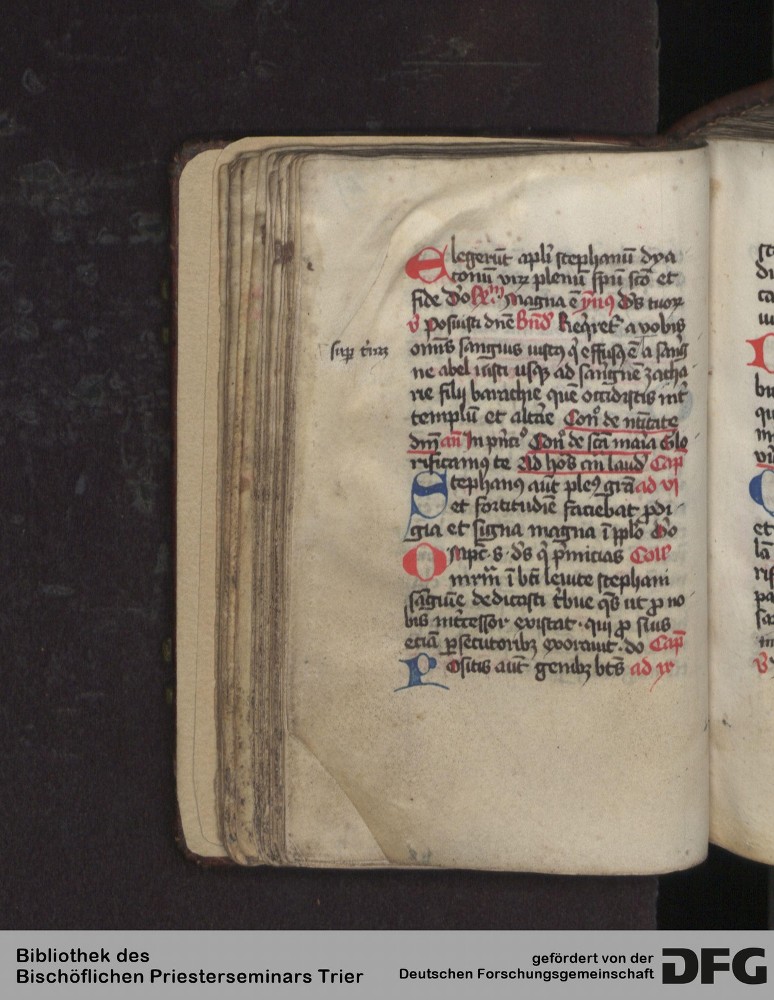 Elegerūt apl'i stephanū dya
conū virꝝ plenū spū sc̄o et
fide d'o magna ē ymꝰ d's tuoꝝ
v̄ Posuisti dn̄e Bn̄d' Reqͥret' a vobis
om̄is sanguis iustꝰ qͥ effusꝰ ē a sang
sup̄ t'raꝫ
ne abel iusti usqꝫ ad sanguinē zacha
rie filij barachie quē occidistis int'
templū et altare Com̄o de natiuitate
dn̄i an̄ In pͥncͥ° Com̄° de sc̄a maria Glo
rificamꝰ te Ad hos ōn laud' Cap̄
Stephanꝰ aūt plenꝰ grā ad vi
et fortitudīe faciebat pdi
gia et signa magna ī pplō d'o
Omp̄c s. d's qͥ pͥmicias Coll'
mr̄m ī bt̄i leuite stephani
sāguīe dedicasti t'bue qs̄ ut ꝓ no
bis int'cessor existat. qui ꝓ suis
eciā ꝑsecutoribꝫ exorauit. do Cap̄
Positis aūt genibꝫ bt̄s ad ix
Bibliothek des
Bischöflichen Priesterseminars Trier
gefördert von der
Deutschen Forschungsgemeinschaft DFG